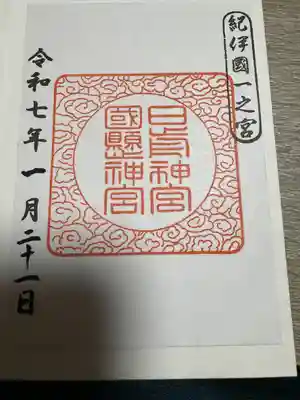 紀伊國一之宮
日前神宮
國懸神宮
令和七年一月二十一日